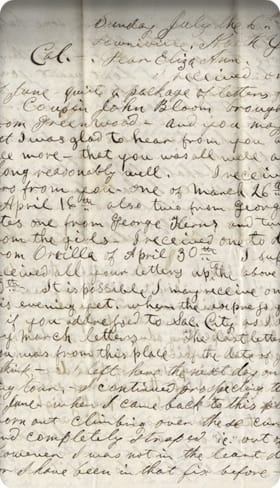 Sunday July the
Cal. - Dear Eliza Ann.
I received
of June quite a package of letters
Cousin John Bloom broug
om Greenwood - and you ma
t I was glad to hear from you
e more - that you was all well
ong reasonably well. I receiv
rs from you - one of March 26th
April 16th also two from Georg
tes one from George Kerns and tw
om the girls - I received one to
om Orzilla of April 30th I
ceived all your letters up the above
th. It is possible I may receive on
is evening yet, when the express
if you addressed to Sac. City
y March letters The last letter
ou was from this place the date of
think - I left here the next day on
ng tour - I continued prospecting
June - when I came back to this
orn out climbing over the
nd completely Strapped i.e. out of
owever I was not in the least d
or I have been in that fix before